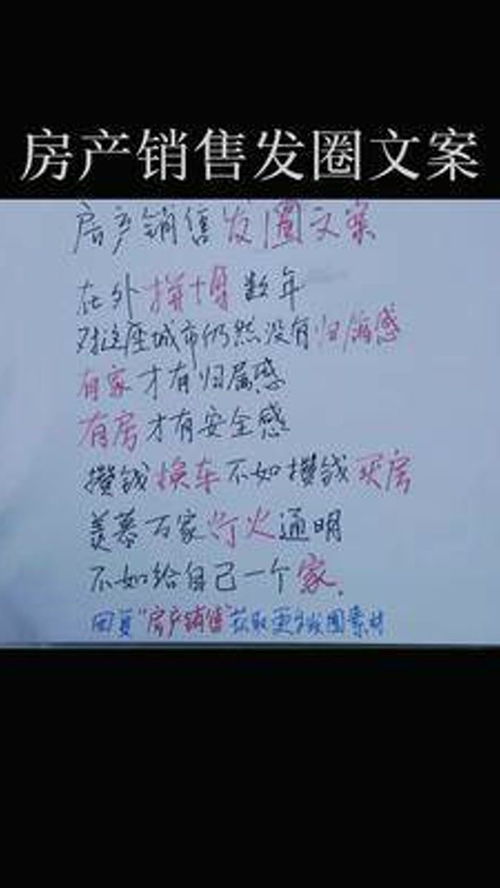 房产销售发圈文案
房产销售发圈文案
在外拼搏数年
对这座城市仍然没有归属感
有家才有归属感
有房才有安全感
攒钱换车不如攒钱买房
羡慕万家灯火通明
不如给自己一个家.
回复"房产销售"获取更多发圈素材